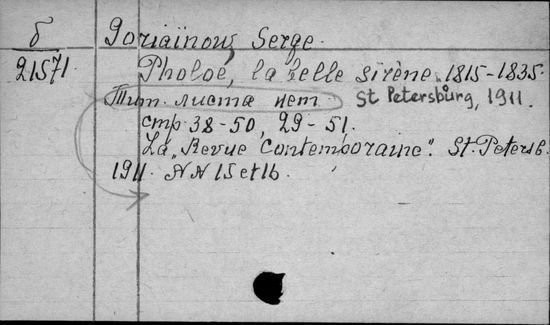 б
21571.
Goriaïnow, Serge.
Pholoé, la belle sirène. 1815-1835.
Тит. листа нет. St Petersburg, 1911.
стр. 38-50, 29-51.
La „Revue Contemporaine". St. Petersb.
1911. NN 15 et 16.